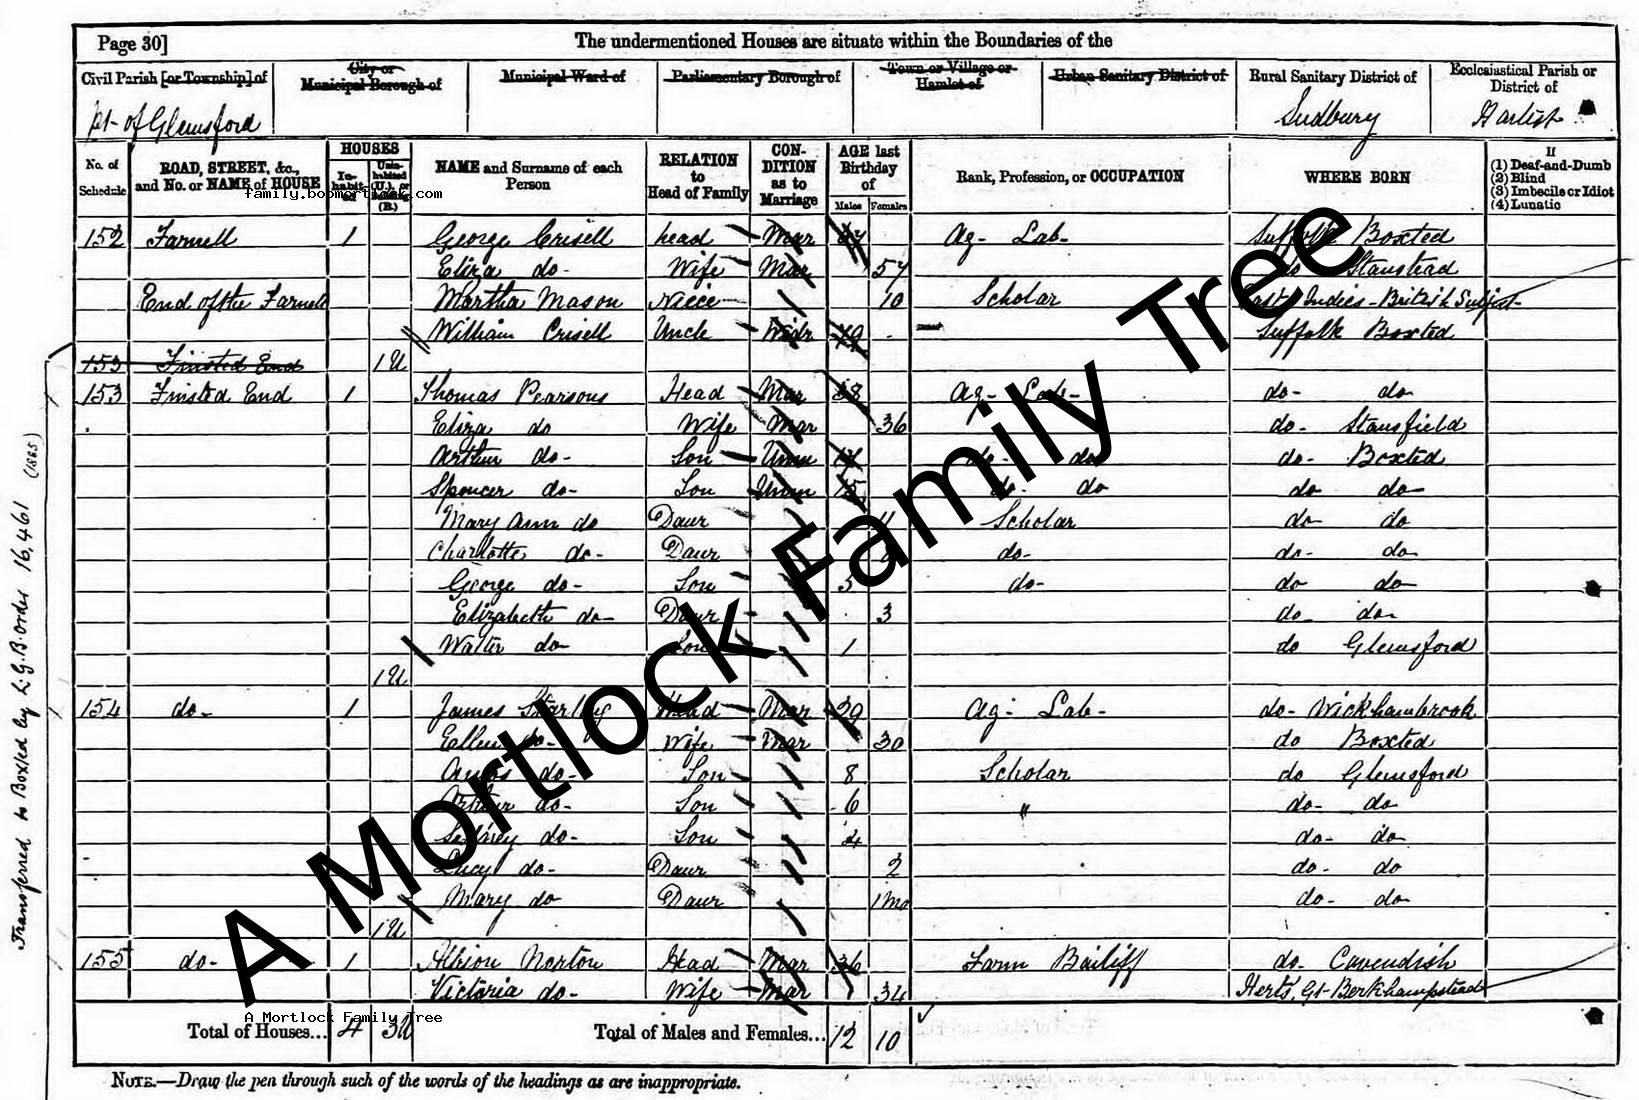 Page 30]
The undermentioned Houses are situate within the Boundaries of the
Civil Parish [or Township] of
City or Municipal Borough of
Municipal Ward of
Parliamentary Borough of
Town or Village or Hamlet of
Urban Sanitary District of
Rural Sanitary District of
Ecclesiastical Parish or District of
pt of Glemsford
Sudbury
Hartist
No. of Schedule
ROAD, STREET, &c., and No. or NAME of HOUSE
HOUSES
In-habit-ed
Unin-habited (U.), or (B.)
NAME and Surname of each Person
RELATION to Head of Family
CON-DITION as to Marriage
AGE last Birthday of
Males
Females
Rank, Profession, or OCCUPATION
WHERE BORN
If
(1) Deaf-and-Dumb
(2) Blind
(3) Imbecile or Idiot
(4) Lunatic
family.bobmortlock.com
152 Farnell 1 George Crisell head Mar Ag- Lab- Suffolk Boxted
Eliza do- Wife Mar 57 do Stanstead
End of the Farnell Martha Mason Niece 10 Scholar East Indies - British Subject
William Crisell Uncle Widr Suffolk Boxted
153 Finsted End 1U
153 Finsted End 1 Thomas Pearsons Head Mar 38 Ag- Lab- do- do
Eliza do Wife Mar 36 do- Stansfield
Arthur do- Son Unm do- do do- Boxted
Spencer do- Son Unm 15 do- do do do
Mary Ann do Daur 11 Scholar do do
Charlotte do- Daur do- do- do
George do- Son 5 do- do do
Elizabeth do- Daur 3 do do
Walter do Son 1 do Glemsford
1U
154 do- 1 James Head Mar 39 Ag- Lab- do- Wickhambrook
Ellen do- Wife Mar 30 do Boxted
Amos do- Son 8 Scholar do Glemsford
Arthur do- Son 6 " do- do
Sidney do- Son 4 do- do
Lucy do- Daur 2 do- do
Mary do Daur 1mo do- do
1U
155 do- 1 Albion Norton Head Mar 36 Farm Bailiff do- Cavendish
Victoria do- Wife Mar 34 Herts, Gt- Berkhampstead
Total of Houses... 4 3U
Total of Males and Females... 12 10
NOTE.—Draw the pen through such of the words of the headings as are inappropriate.
Transferred to Boxted by L.G.B. order 16,461 (1885)
A Mortlock Family Tree
A Mortlock Family Tree